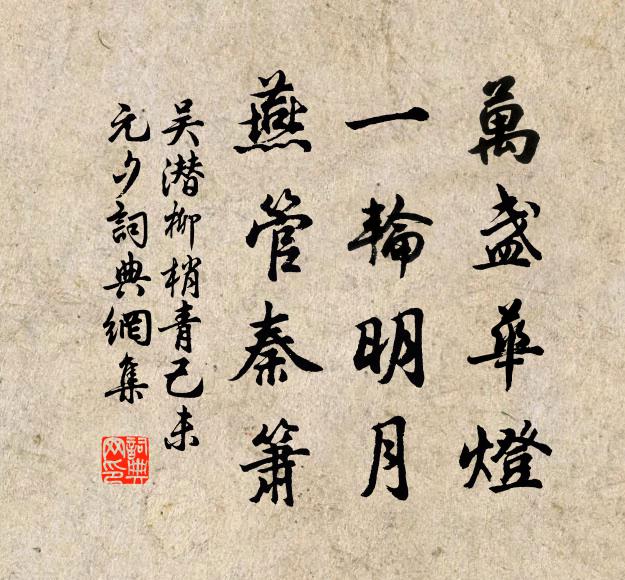 萬盞華燈
一輪明月
燕管秦簫
吳潛柳梢青己未
元夕詞典網集
詞典
网印